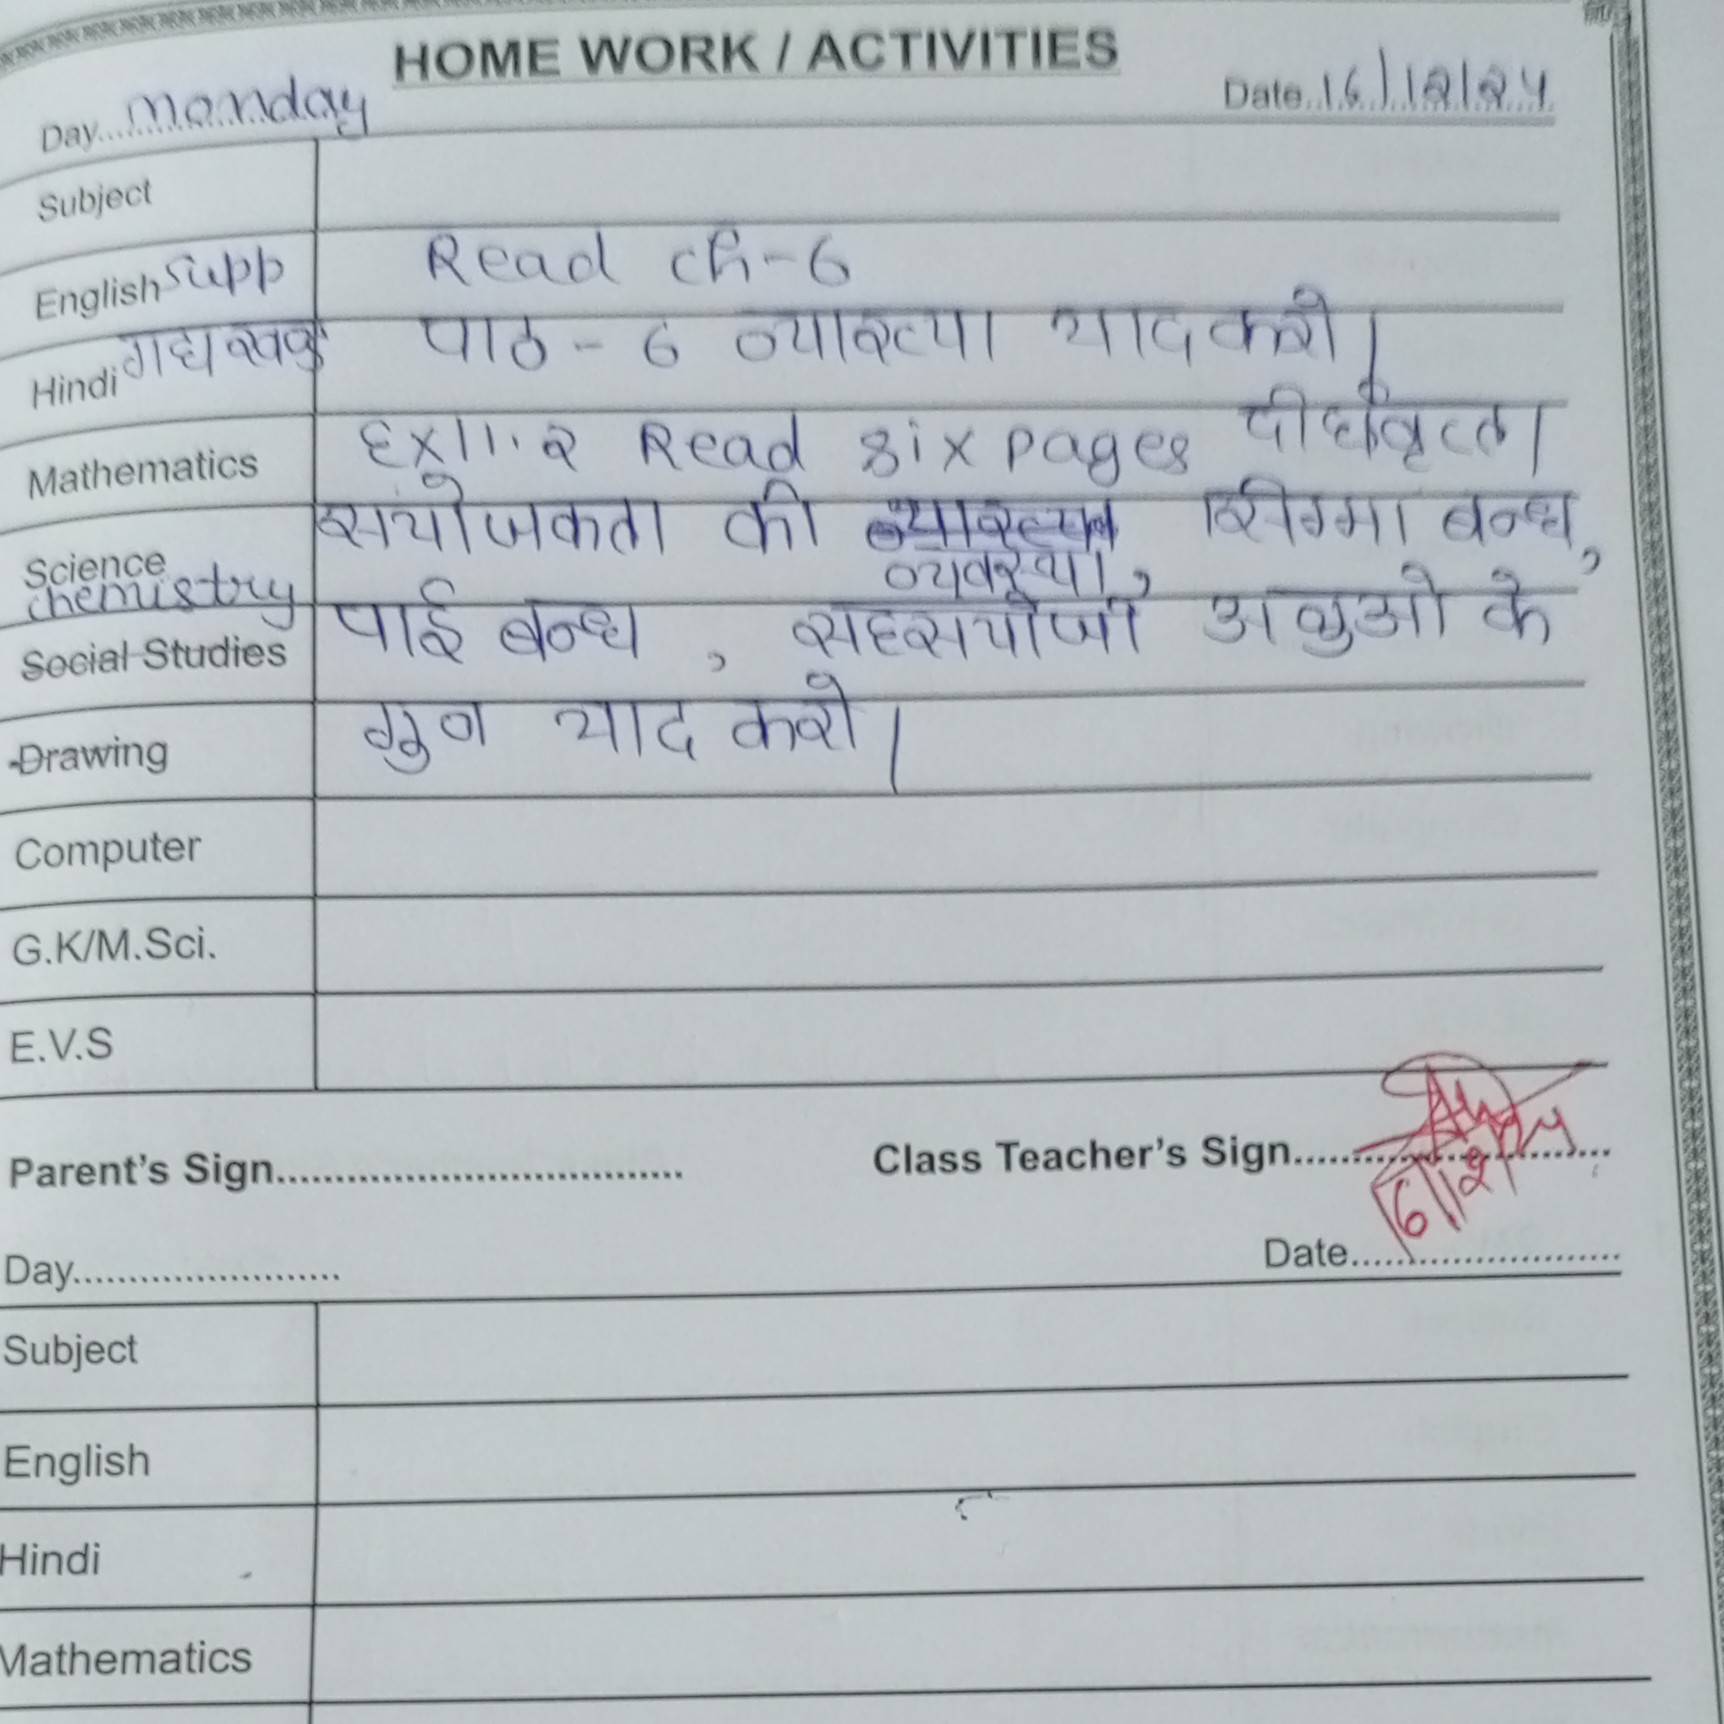 HOME WORK / ACTIVITIES
Day monday Date 16/12/24
Subject
English supp Read ch-6
Hindi गद्य खण्ड पाठ - 6 व्याख्या याद करो।
Mathematics Ex 11.2 Read six pages दीर्घवृत्त।
Science संयोजकता की व्याख्या सिग्मा बन्ध,
chemistry व्यवस्था,
Social Studies पाई बन्ध, सहसंयोजी अणुओ के
Drawing गुण याद करो।
Computer
G.K/M.Sci.
E.V.S
Parent's Sign Class Teacher's Sign
16/12/24
Day Date
Subject
English
Hindi
Mathematics